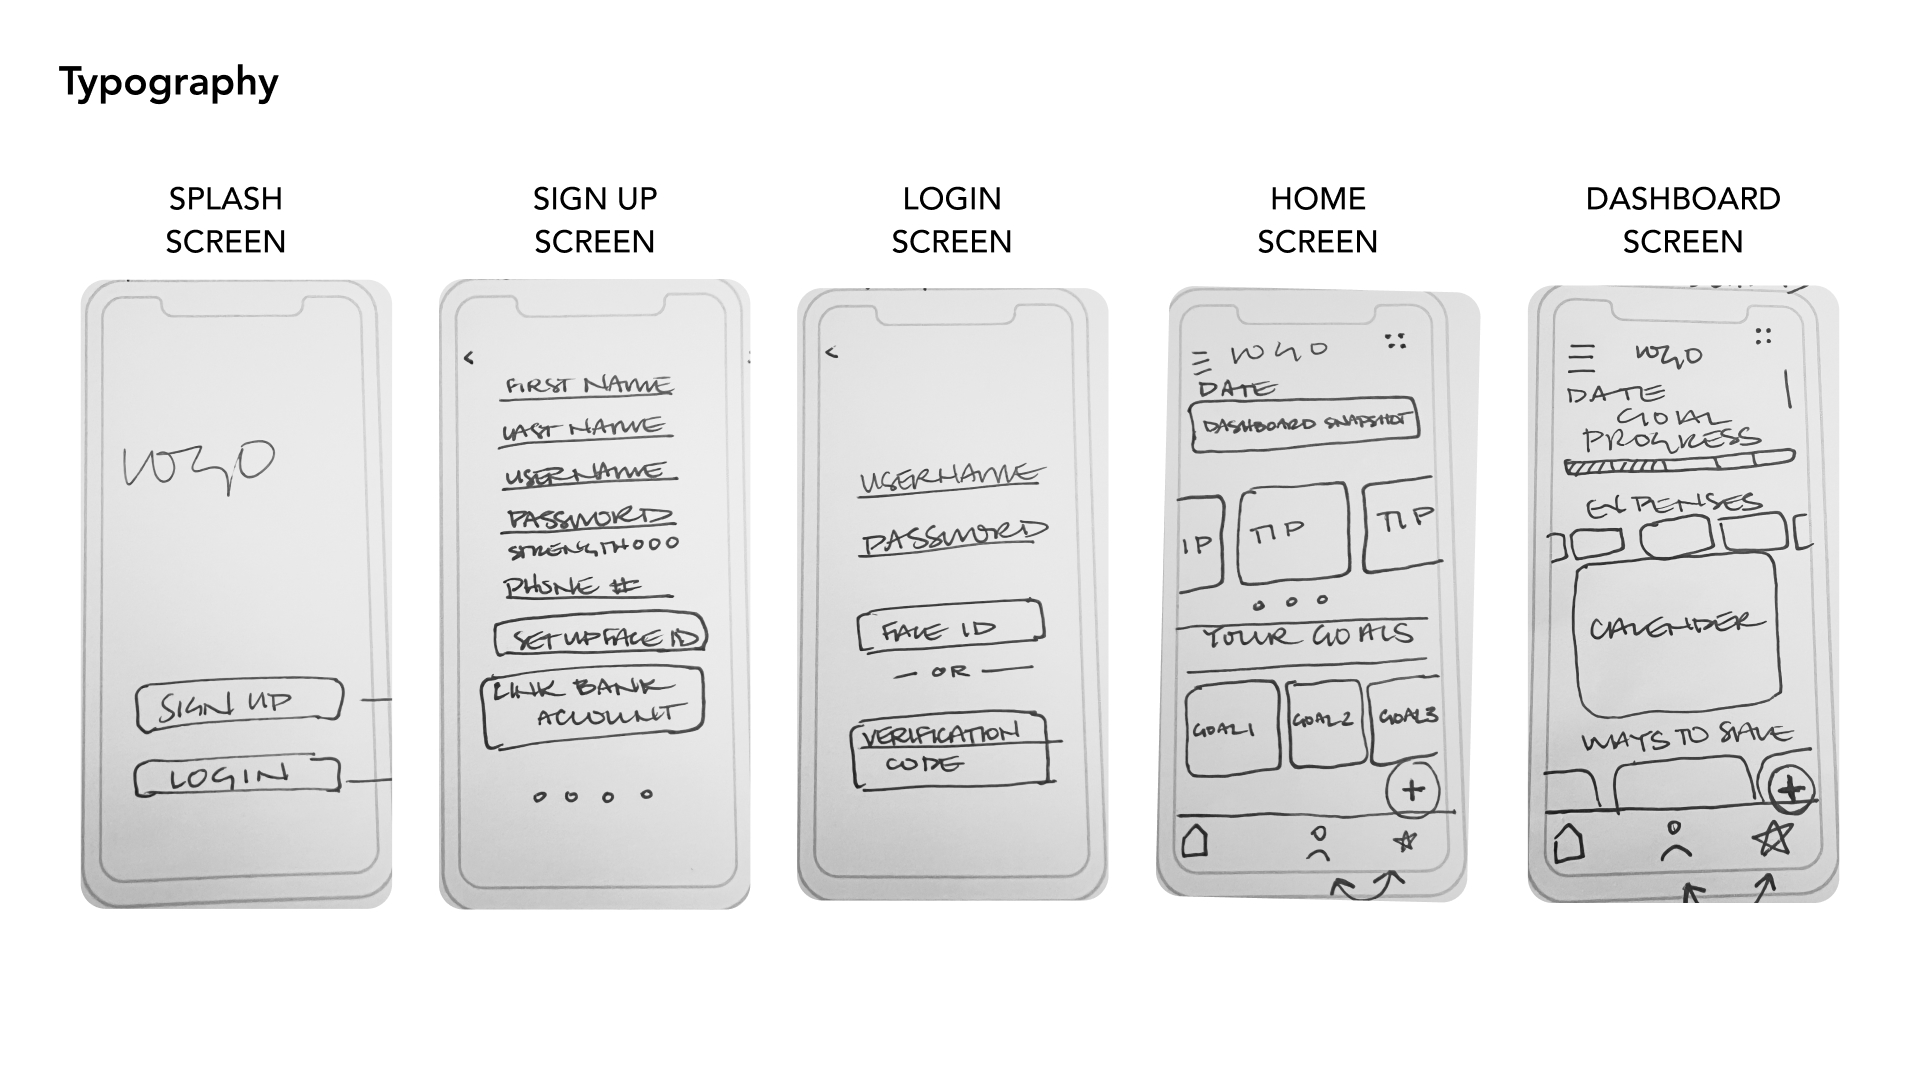 Typography
SPLASH
SCREEN
LOGO
SIGN UP
LOGIN
SIGN UP
SCREEN
<
FIRST NAME
LAST NAME
USERNAME
PASSWORD
STRENGTH OOO
PHONE #
SET UP FACE ID
LINK BANK
ACCOUNT
LOGIN
SCREEN
<
USERNAME
PASSWORD
FACE ID
— OR —
VERIFICATION
CODE
HOME
SCREEN
LOGO
DATE
DASHBOARD SNAPSHOT
IP TIP TIP
YOUR GOALS
GOAL1 GOAL2 GOAL3
+
DASHBOARD
SCREEN
LOGO
DATE
GOAL
PROGRESS
EXPENSES
CALENDER
WAYS TO SAVE
+